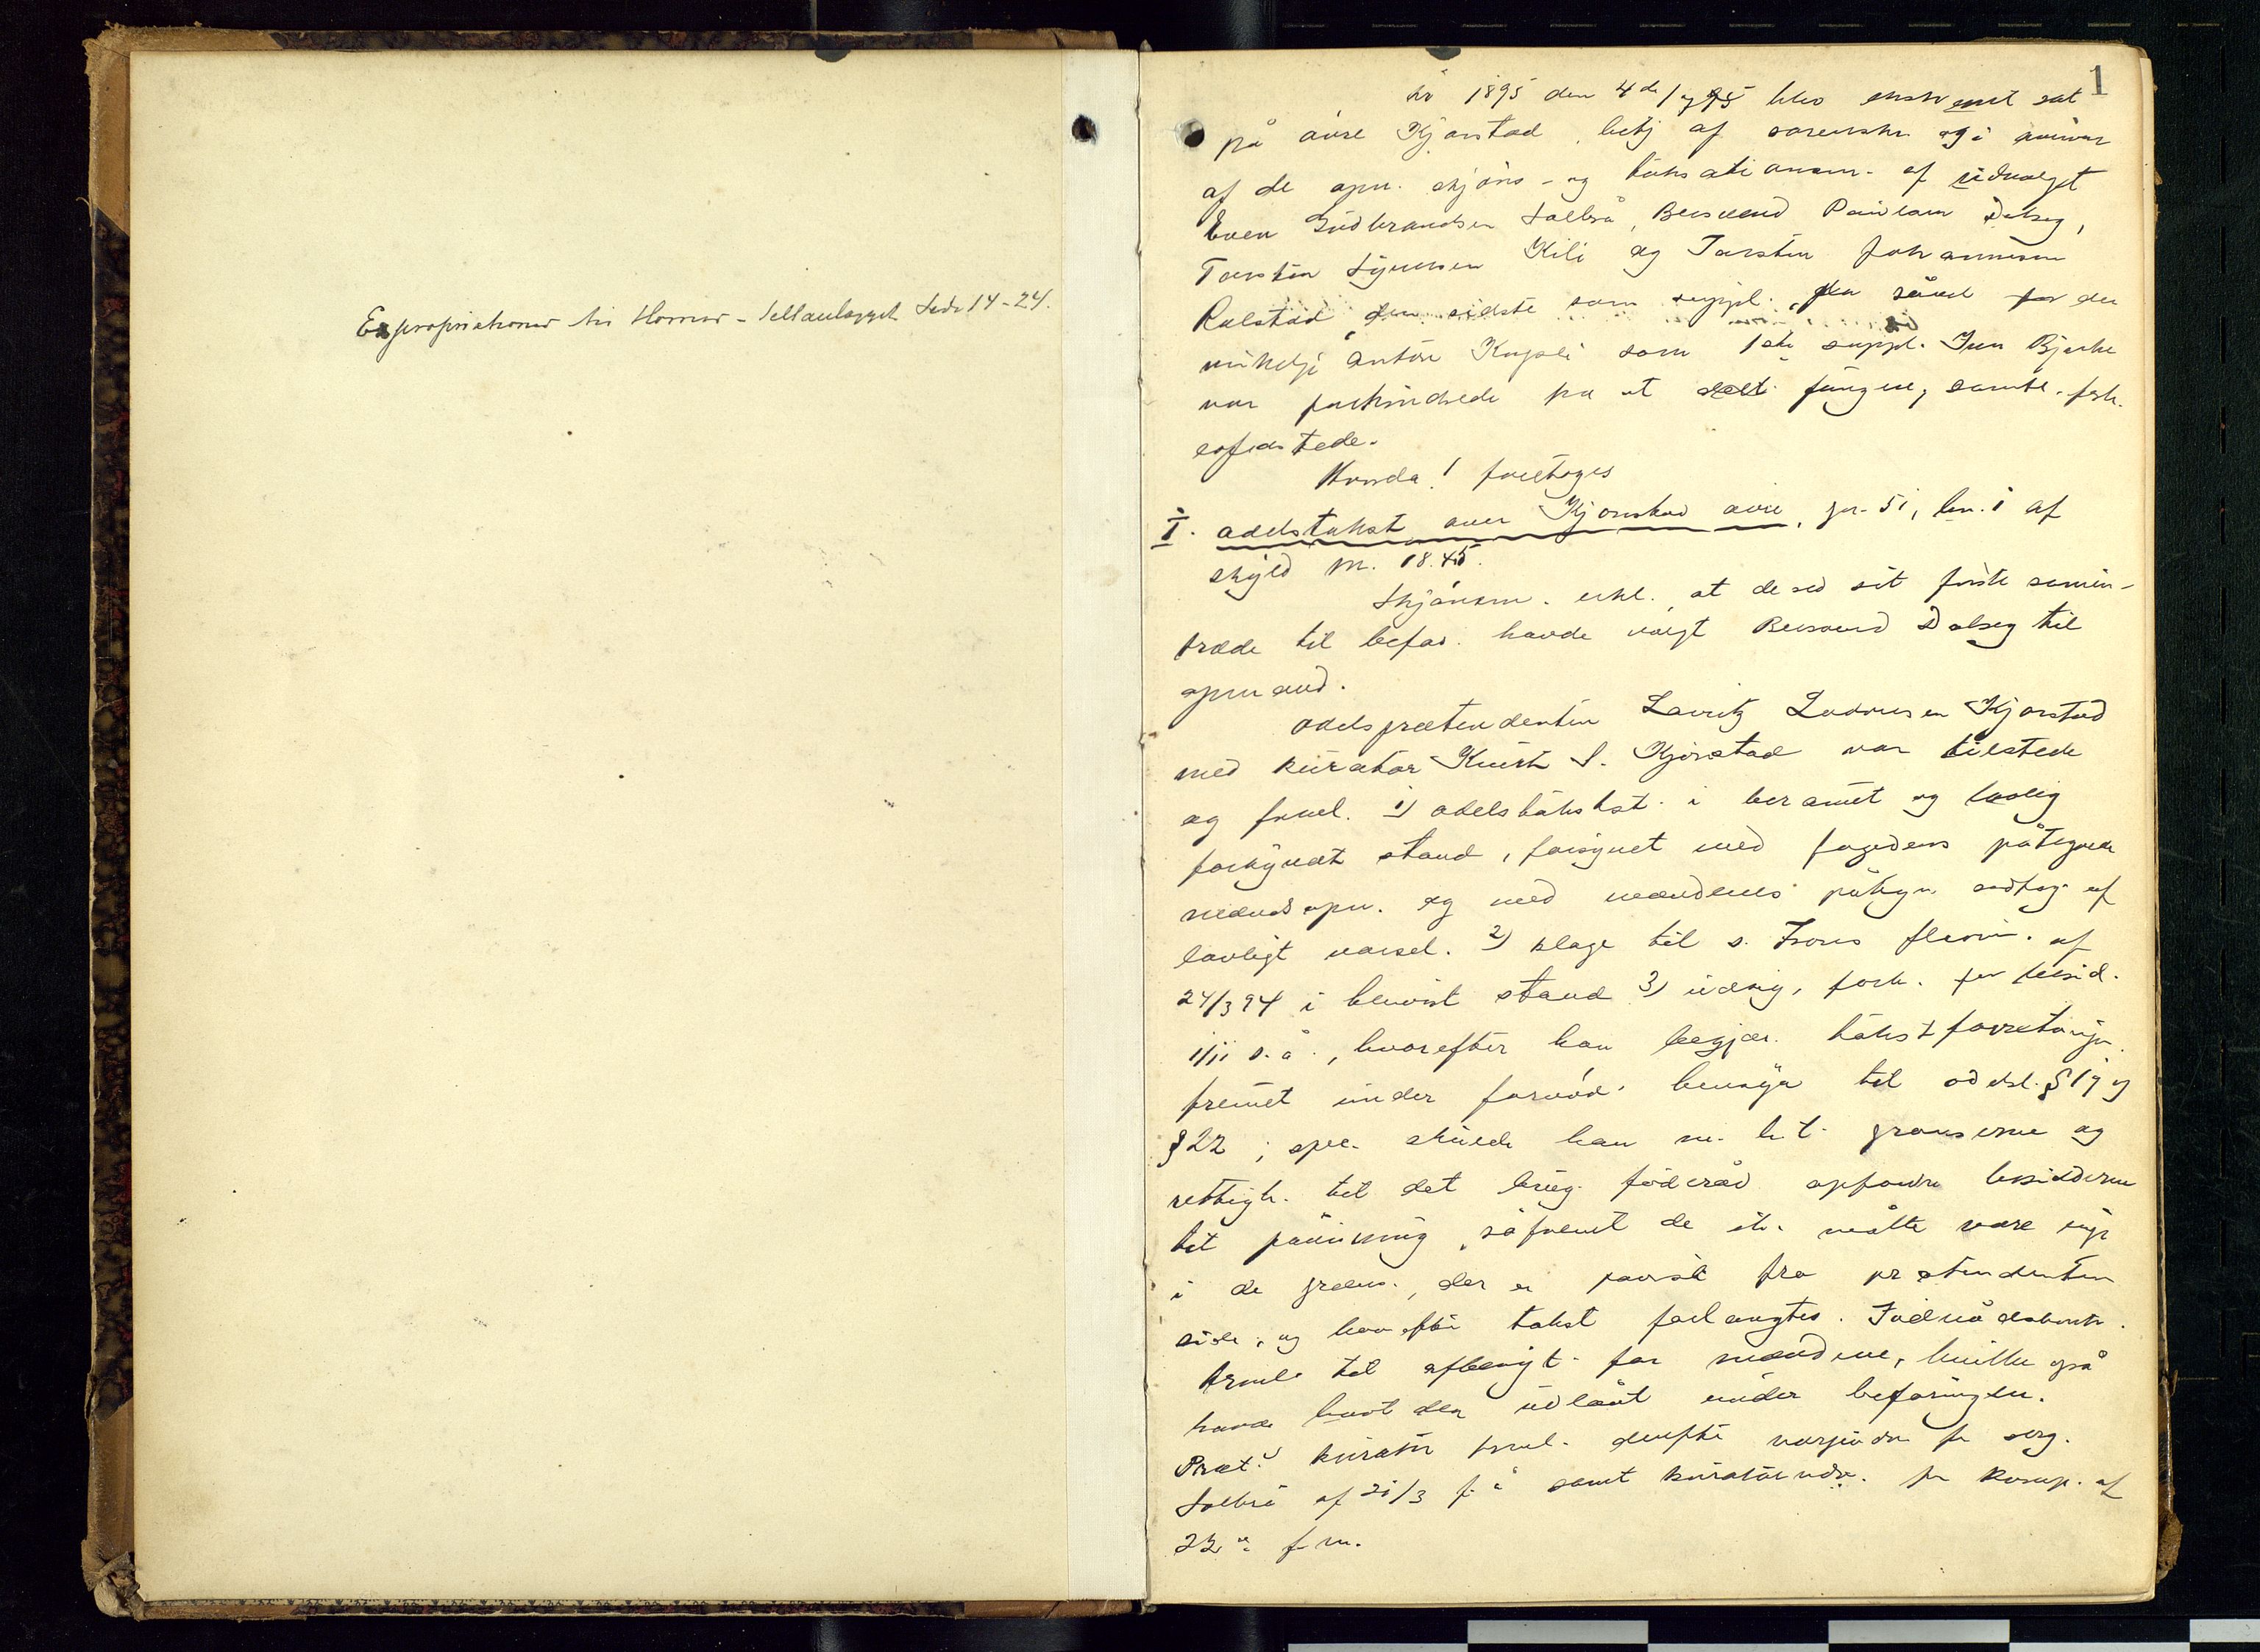 Expropriationer til Hornsø - Sellanlægget Side 14-24.
1
År 1895 den 4de blev ekstraret sat
på øvre Kjørstad, betj af sorenskr og i nærvær
af de opn. skjøns- og takstationsm. af udvalget
Even Gudbrandsen Solbrå, Bersvend Paulsen Dalseg,
Torstein Syversen Kili og Torstein Johannesen
Rolstad, den sidste som suppl. da såvel for den
Anton som 1ste suppl. Iver Bjerke
var forhindrede fra at fungere, samtl.
eofedstede.
Hvorda! foretoges
I. odelstakst over Kjørstad øvre, gn. 51, bn. 1 af
skyld M. 18.45.
Skjønsm. erkl. at de ved sit første sammen-
træde til befar. havde valgt Bersvend Dalseg til
opmand.
Odelsprætendenten Lauritz Larsen Kjørstad
med kurator Knut S. Kjørstad var tilstede
og freml. 1) odelstakst. i beramet og lovlig
forkyndt stand, forsynet med fogdens påtegnede
mænds opn. og med mændenes påtegn vedtag af
lovligt varsel. 2) klage til s. Frons af
24/3 94 i stand 3) udskrift, forh. for besid.
1/11 s.å., hvorefter han begjær. takstforretningen
fremmet under fornød. hensyn til odelsl. § 19 og
§ 22; spec. skulde han m. h. t. grænserne og
rettigh. til det brug føderåd opfordre besidderne
til påvisning, såfremt de ikke måtte være enige
i de grænser, der er påvist fra prætendentens
side, og hvorefter takst forlangtes. Føderådskontr.
freml. til afbenyt. for mændene, hvilke også
havde havt den udlånt under befaringen.
Præt.s kurator freml. derefter værgeudn. fra
Solbrå af 21/3 f.å samt kuratorudn. fra af
22de f.m.